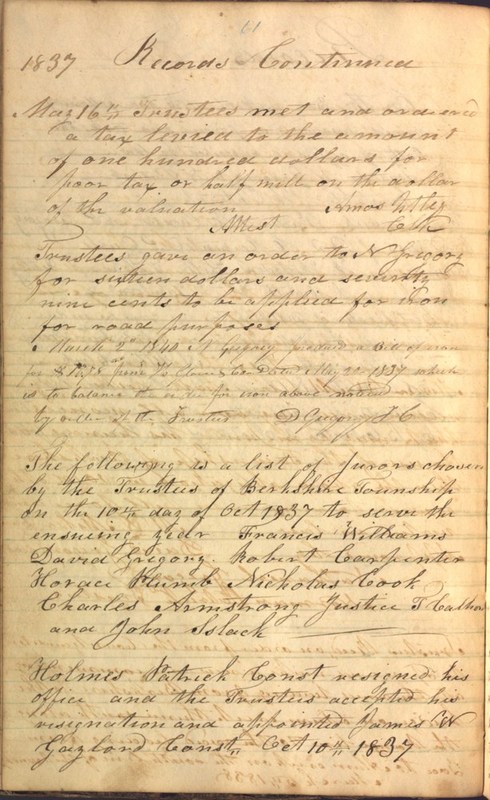 61
1837 Records Continued
May 16th Trustees met and ordered
a tax levied to the amount
of one hundred dollars for
poor tax or half mill on the dollar
of the valuation Amos Utley
Attest Clk
Trustees gave an order to N Gregory
for sixteen dollars and seventy
nine cents to be applied for iron
for road purposes
March 2d 1840 N Gregory produced a Bill of iron
for Dated May 1837 which
is to balance the order for iron above
by order of the Trustees D Gregory T C
The following is a list of Jurors chosen
by the Trustees of Berkshire Township
on the 10th day of Oct 1837 to serve the
ensueing year Francis Williams
David Gregory. Robert Carpenter
Horace Plumb Nicholas Cook
Charles Armstrong Justice T
and John Slack
Holmes Patrick Const resigned his
office and the Trustees accepted his
resignation and appointed James W
Gaylord Const. Oct 10th 1837